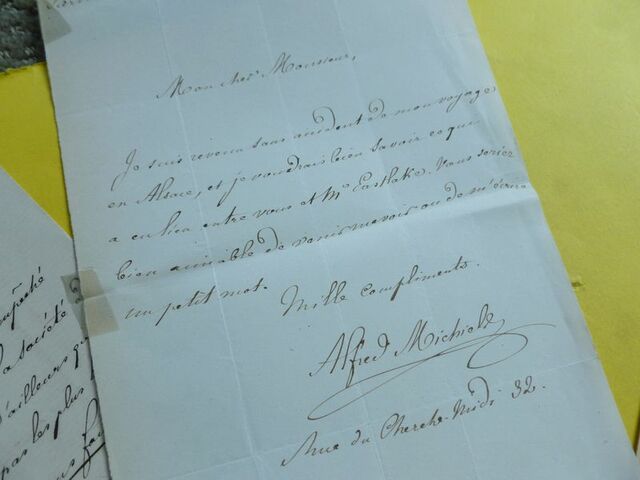 Mon cher Monsieur,
Je suis revenu sans accident de mon voyage
en Alsace, et je voudrais bien savoir ce qui
a eu lieu entre vous et Mr Eastlake. Vous seriez
bien aimable de venir me voir ou de m'écrire
un petit mot.
Mille compliments.
Alfred Michiels
Rue du Cherche-Midi 32.
mpêché
a société
d'ailleurs qu
pas les plus